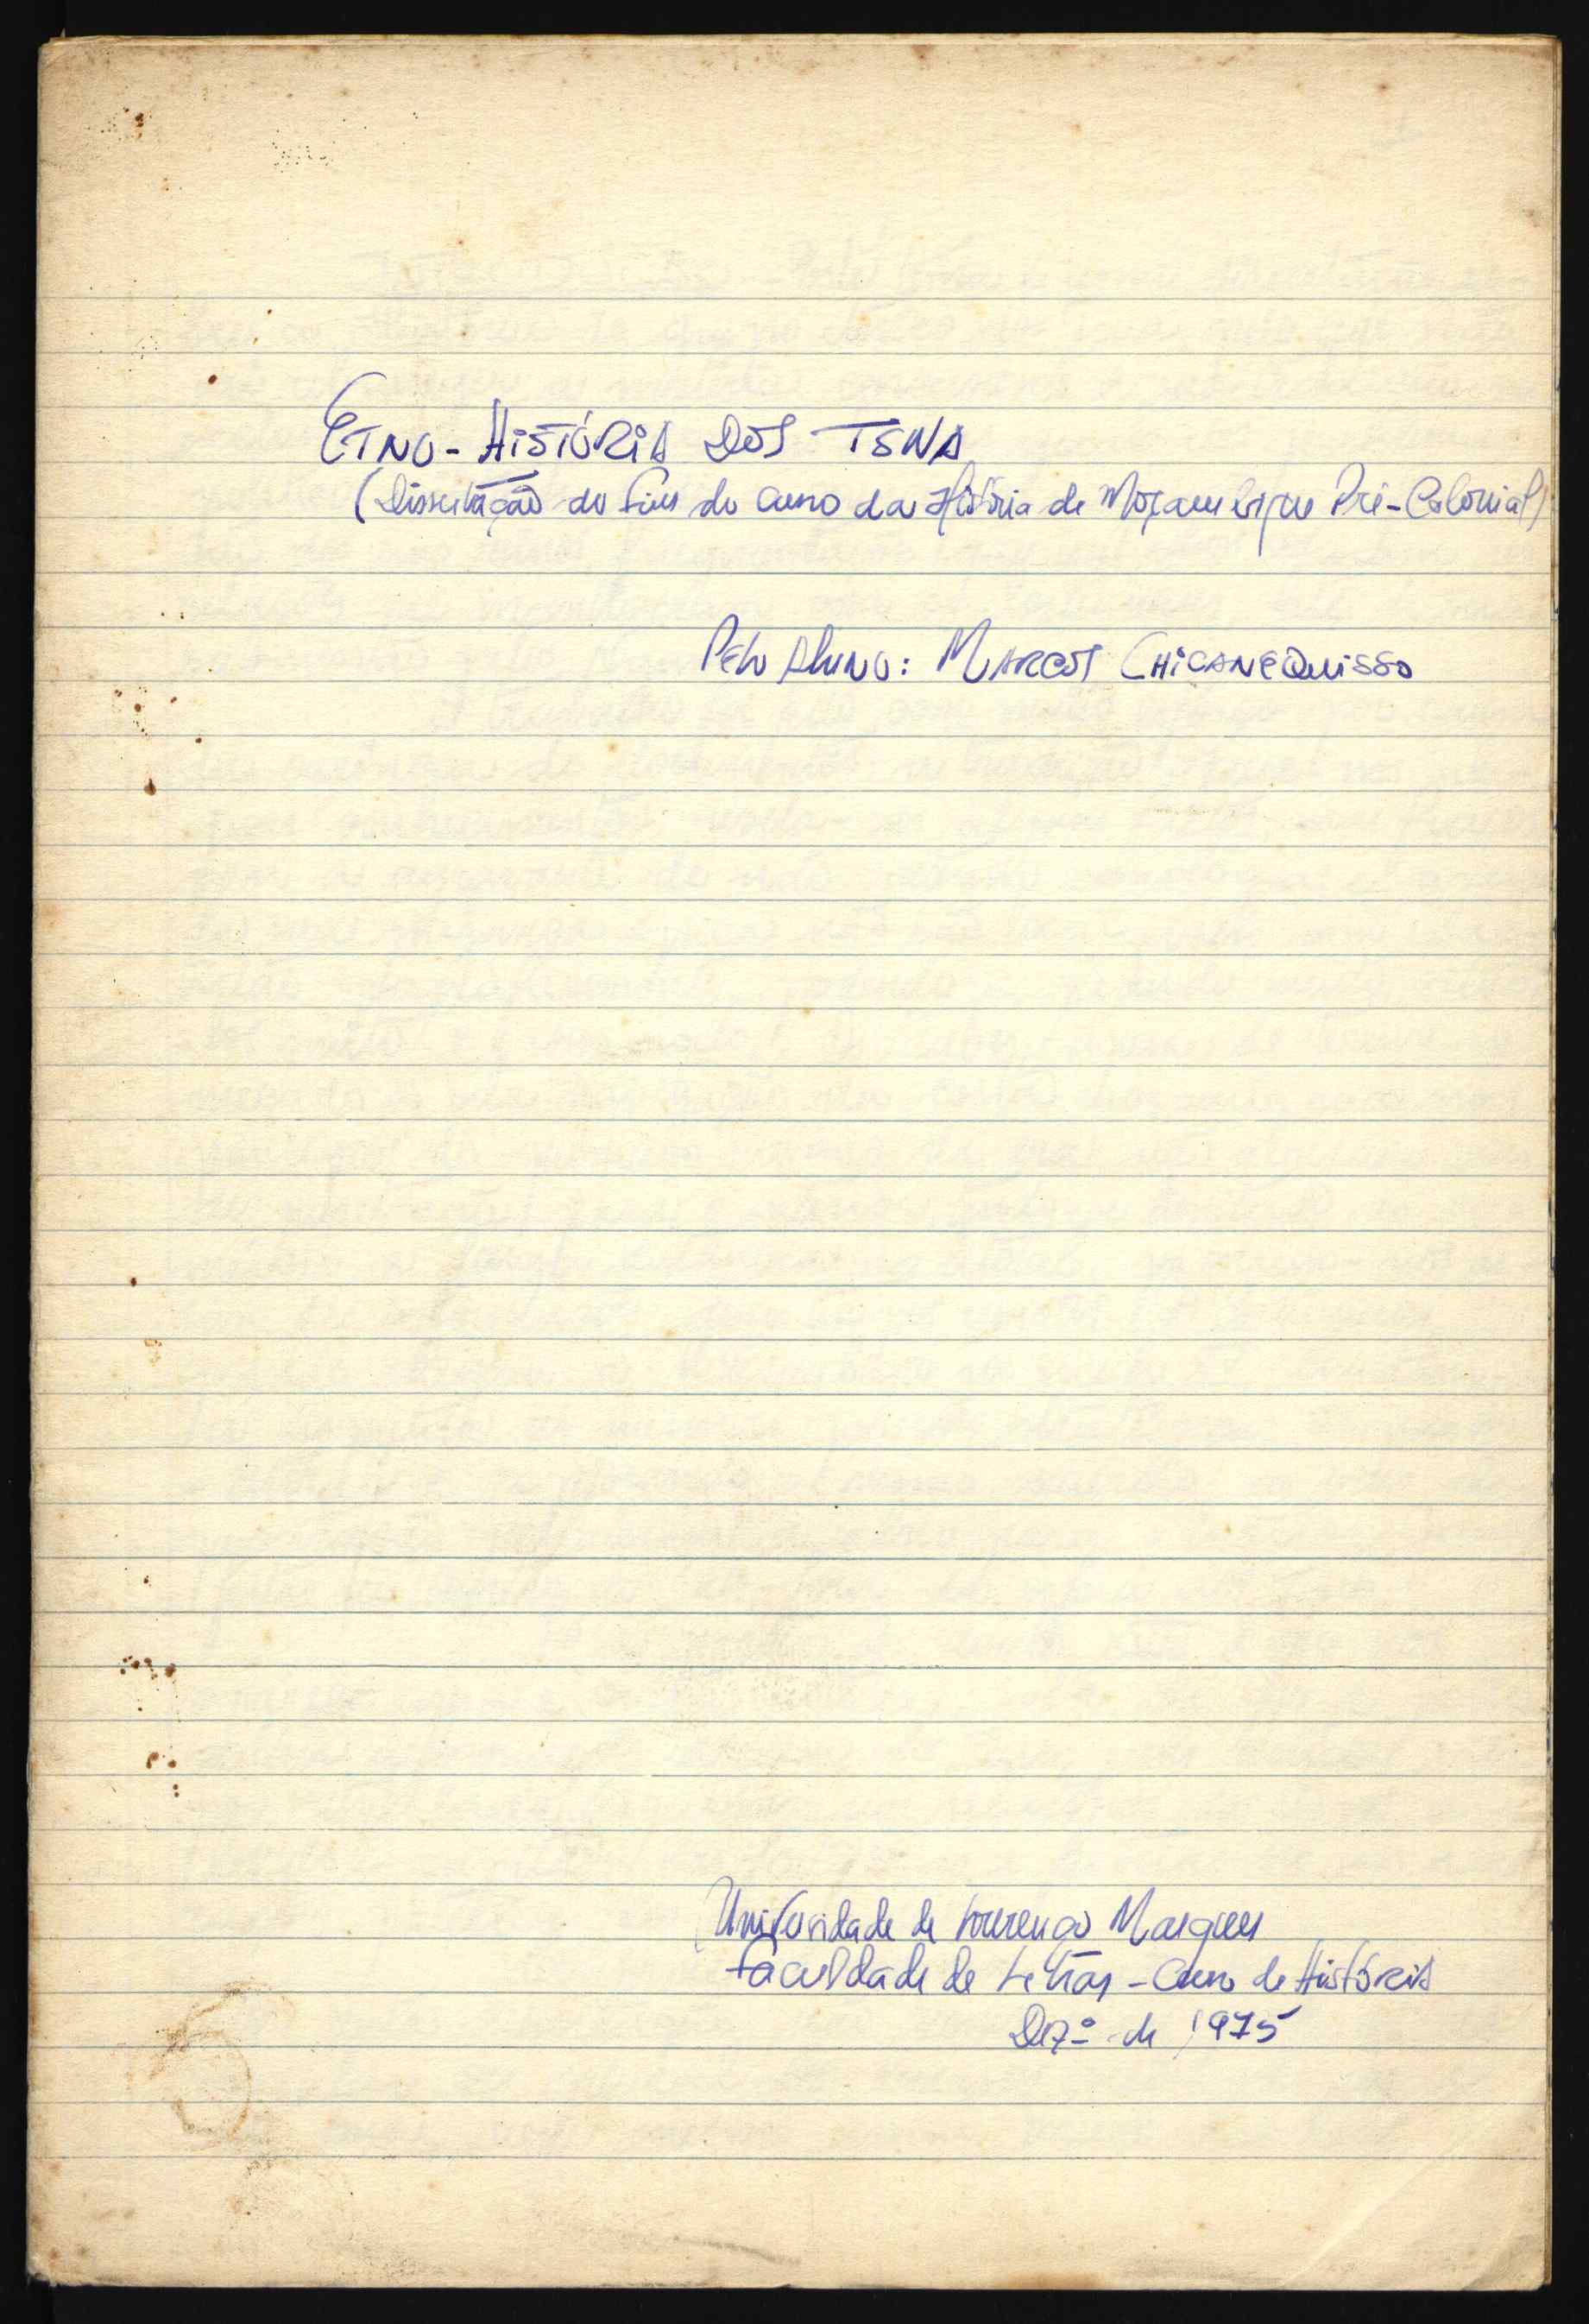 ETNO-HISTÓRIA DOS TSWA
(Dissertação do fim do curso da História de Moçambique Pré-Colonial)
Pelo Aluno: MARCOS CHICANEQUISSO
Universidade de Lourenço Marques
Faculdade de Letras - Curso de História
Dezº de 1975